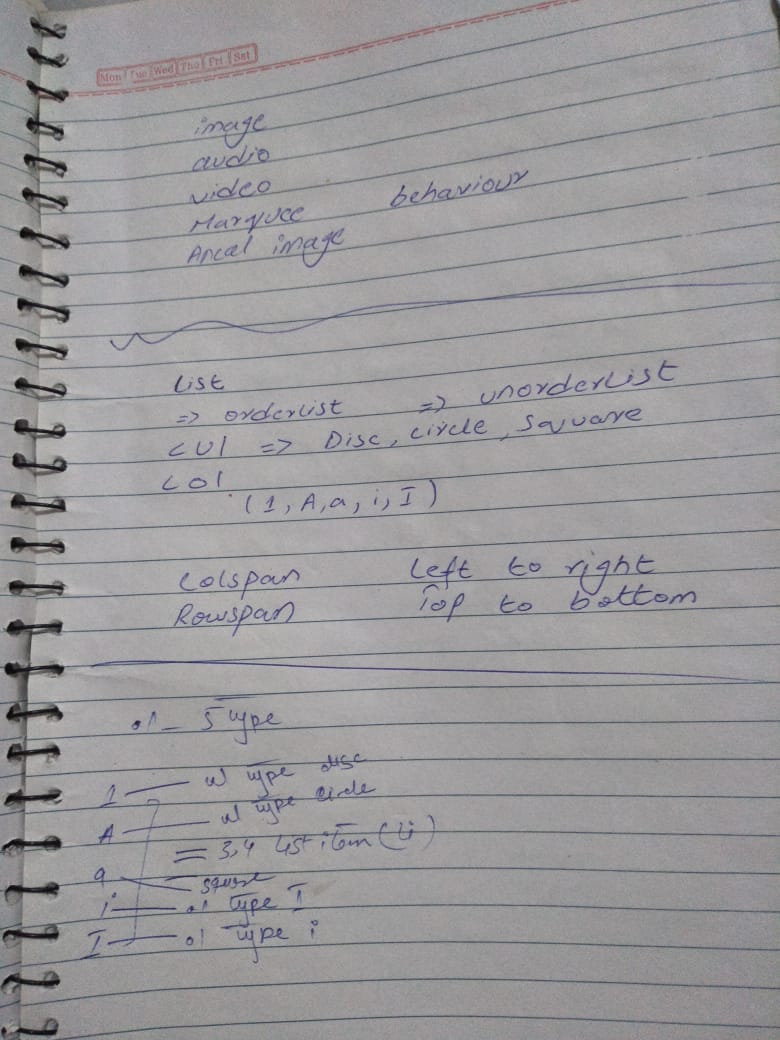 Mon Tue Wed Thu Fri Sat
image
audio
video
Marquee behaviour
Areal image
List
=> orderlist => unorderlist
<Ul => Disc, circle, Square
<ol
(1, A, a, i, I)
Colspan Left to right
Rowspan Top to bottom
ol - 5 type
1 — ul type disc
A — ul type circle
= 3,4 list item (Li)
a — square
i — ol Type I
I — ol Type i